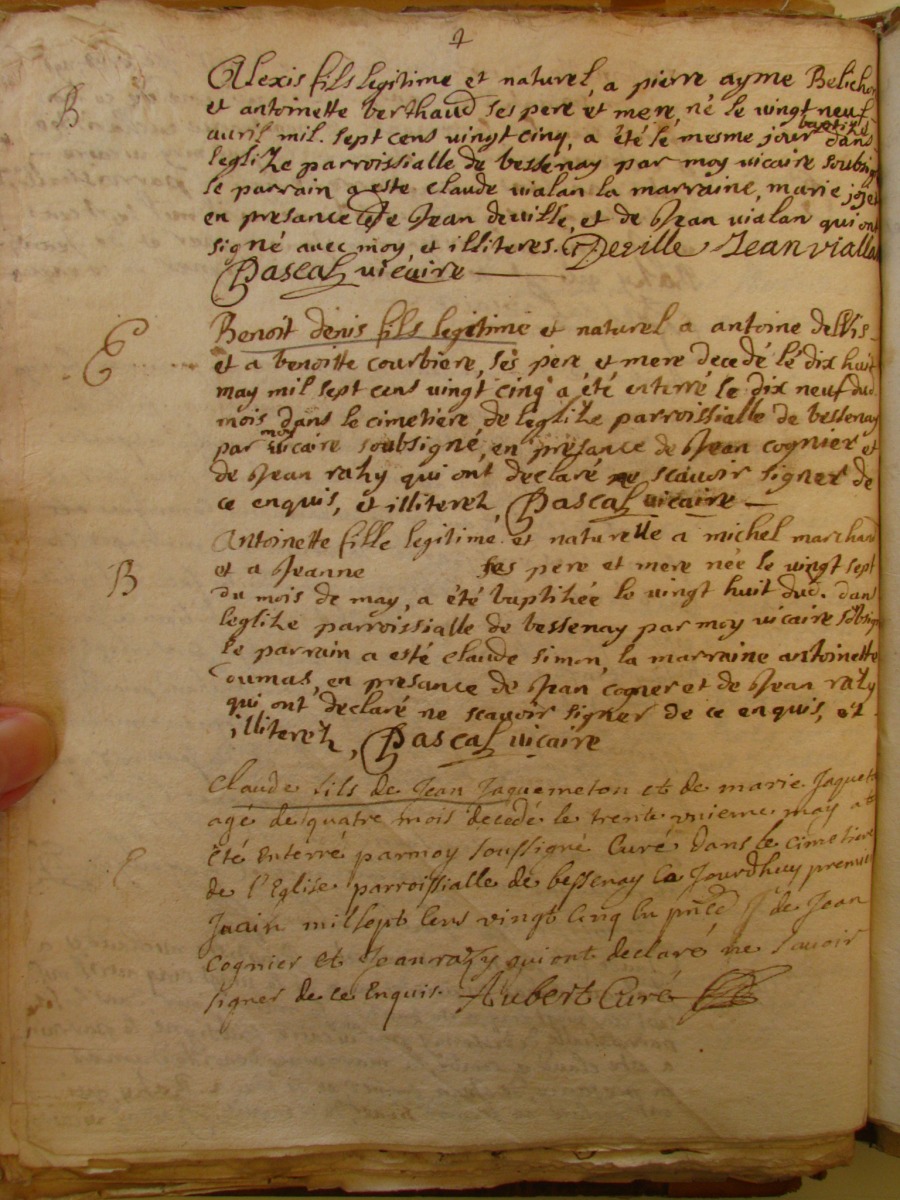 B
Alexis fils legitime et naturel, a pierre ayme Belichon
et antoinette berthaud ses pere et mere, né le vingt neuf
auril mil. sept cens vingt cinq, a été le mesme jour baptisé dans
leglize parroissialle de bessenay par moy vicaire soubsig
le parrain a este claude vialan la marraine, marie
en presance de Jean deville, et de Jean vialan qui ont
signé avec moy, et illiteres. Deville Jean vialla
Pascal vicaire
E
Benoit denis fils legitime et naturel a antoine
et a benoitte courbiere, ses pere et mere decedé le dix huit
may mil sept cens vingt cinq a été enterré le dix neuf dud
mois dans le cimetiere de leglize parroissialle de bessenay
par moy vicaire soubsigné, en presance de Jean cognier et
de Jean razy qui ont declaré ne scavoir signer de
ce enquis, et illiterez, Pascal vicaire
B
Antoinette fille legitime et naturelle a michel marchand
et a Jeanne ses pere et mere née le vingt sept
du mois de may, a été baptizée le vingt huit dud. dans
leglize parroissialle de bessenay par moy vicaire
le parrain a esté claude simon, la marraine antoinette
en presance de Jean cogner et de Jean razy
qui ont declaré ne scavoir signer de ce enquis, et
illiterez, Pascal vicaire
E
Claude fils de Jean Jaquemeton et de marie
agé de quatre mois decedé le trente vnieme may a
été Enterré par moy soussigné Curé dans le cimetiere
de l'Eglise parroissialle de bessenay Ce Jourdhuy premier
Juain mil sept Cens vingt Cinq de Jean
Cognier et Jean razy qui ont declaré ne Sauoir
signer de ce Enquis. Aubert Curé